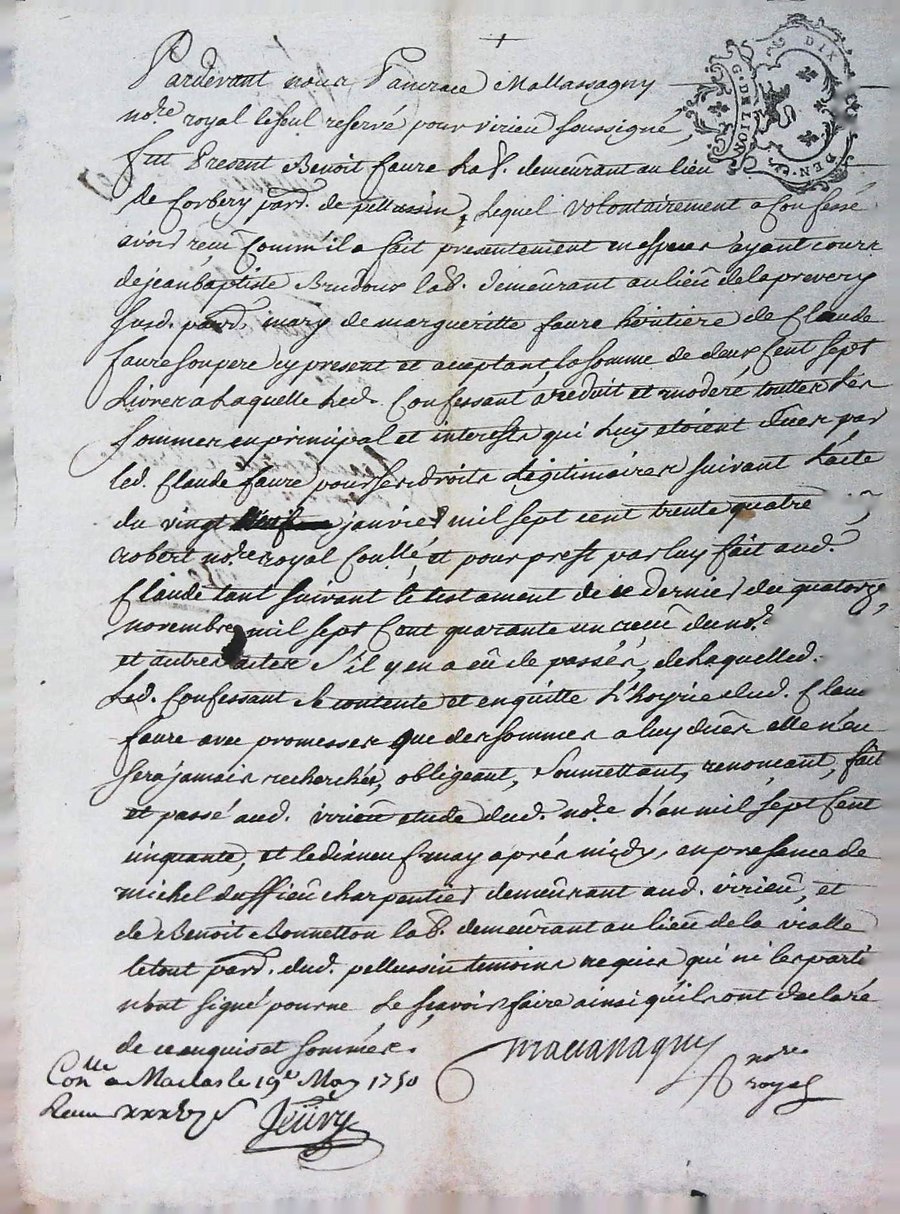 Pardevant nous Pancrace Mallassagny
no.re royal le seul reservé pour virieu soussigné,
fut Present Benoit faure La.b. demeurant au lieu
de Corbery par.d. de pellussin, Lequel volontairement a Confessé
avoir reçu Comm'il a fait presentement en espeses ayant cours
de jean baptiste Brudoux la.b. demeurant au lieu de la prevery
susd. par.d. mary de margueritte faure heritiere de Claude
faure son pere cy present et aceptant, la somme de deux Cent sept
Livres a Laquelle Led. Confessant a reduit et moderé touttes Les
sommes en principal et interests qui Luy etoient dues par
led. Claude faure pour ses droits Légitimaires suivant L'acte
du vingt janvier mil sept cent trente quatre
robert no.re royal et pour prest par luy fait aud.
Claude tant suivant le testament de ce dernier du quatorze
novembre mil sept Cent quarante un reçu dud no.e
et autres actes s'il y en a eû de passés, de Laquelle d.
Led. Confessant se contente et en quitte L'hoyrie dud. Claude
faure avec promesses que des sommes a luy dues elle n'en
sera jamais recherchée, obligeant, soumettant, renoncant, fait
et passé aud. virieu etude dud. no.re L'an mil sept Cent
cinquante, et le dixneuf may après midy, en presance de
michel duffieu charpentier demeurant aud. virieu, et
de Benoit Bonnetton la.b. demeurant au lieu de la vialle
le tout par.d. dud. pellussin temoins requis qui ni les parti
n'ont signé pour ne Le sçavoir faire ainsi qu'ils ont declaré
de ce enquis et sommés.
Mallassagny
no.re
royal
Con.llé a Maclas le 19.e May 1750
G. DE LION
DIX
DEN.